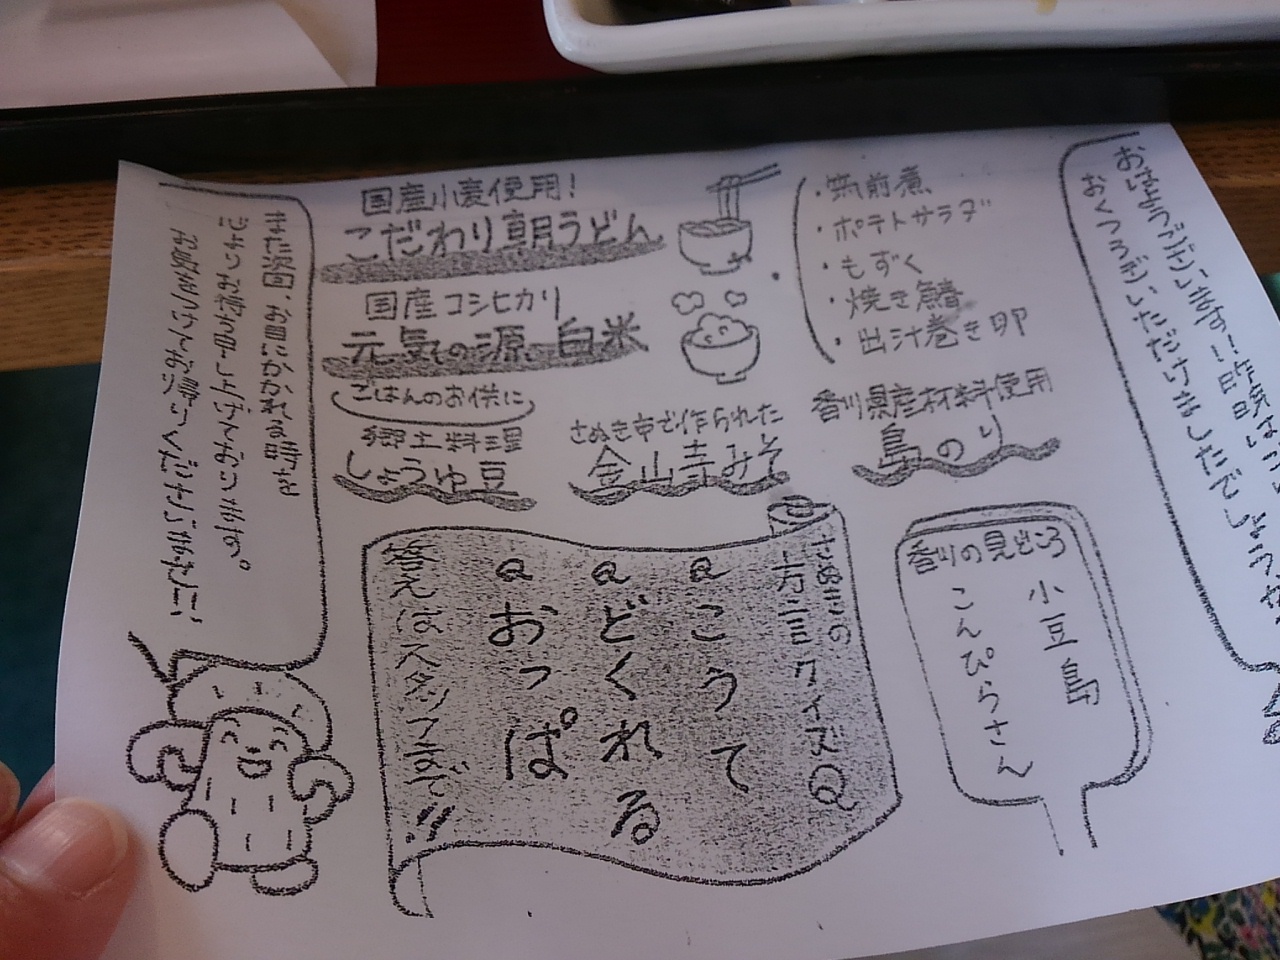 おはようございます!!昨晩は
おくつろぎいただけましたでしょうか
・筑前煮
・ポテトサラダ
・もずく
・焼き鰆
・出汁巻き卵
国産小麦使用!
こだわり朝うどん
国産コシヒカリ
元気の源 白米
ごはんのお供に
香川県産材料使用
島のり
さぬき市で作られた
金山寺みそ
郷土料理
しょうゆ豆
香川の見どころ
小豆島
こんぴらさん
方言クイズQ
@こうて
@どくれる
@おっぱ
答えはスタッフまで!!
また次回、お目にかかれる時を
心よりお待ち申し上げております。
お気をつけてお帰りくださいませ!!